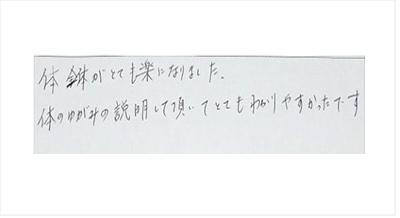 体全体がとても楽になりました。
体のゆがみの説明して頂いてとてもわかりやすかったです